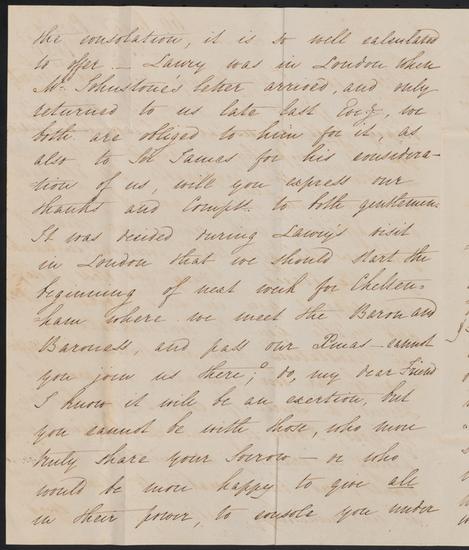 the consolation, it is so well calculated
to offer — Lawry was in London when
Mr. Johnstone's letter arrived, and only
returned to us late last Eveg, we
both are obliged to him for it as
also to Sir James for his considera-
tion of us, will you express our
thanks and Compts. to both gentlemen.
It was decided during Lawry's visit
in London that we should start the
beginning of next week for Chelten-
-ham where we meet the Baron and
Baroness, and pass our Xmas — cannot
you join us there; do, my dear Friend
I know it will be an exertion, but
you cannot be with those, who more
truly share your Sorrow — or who
would be more happy to give all
in their power, to console you under